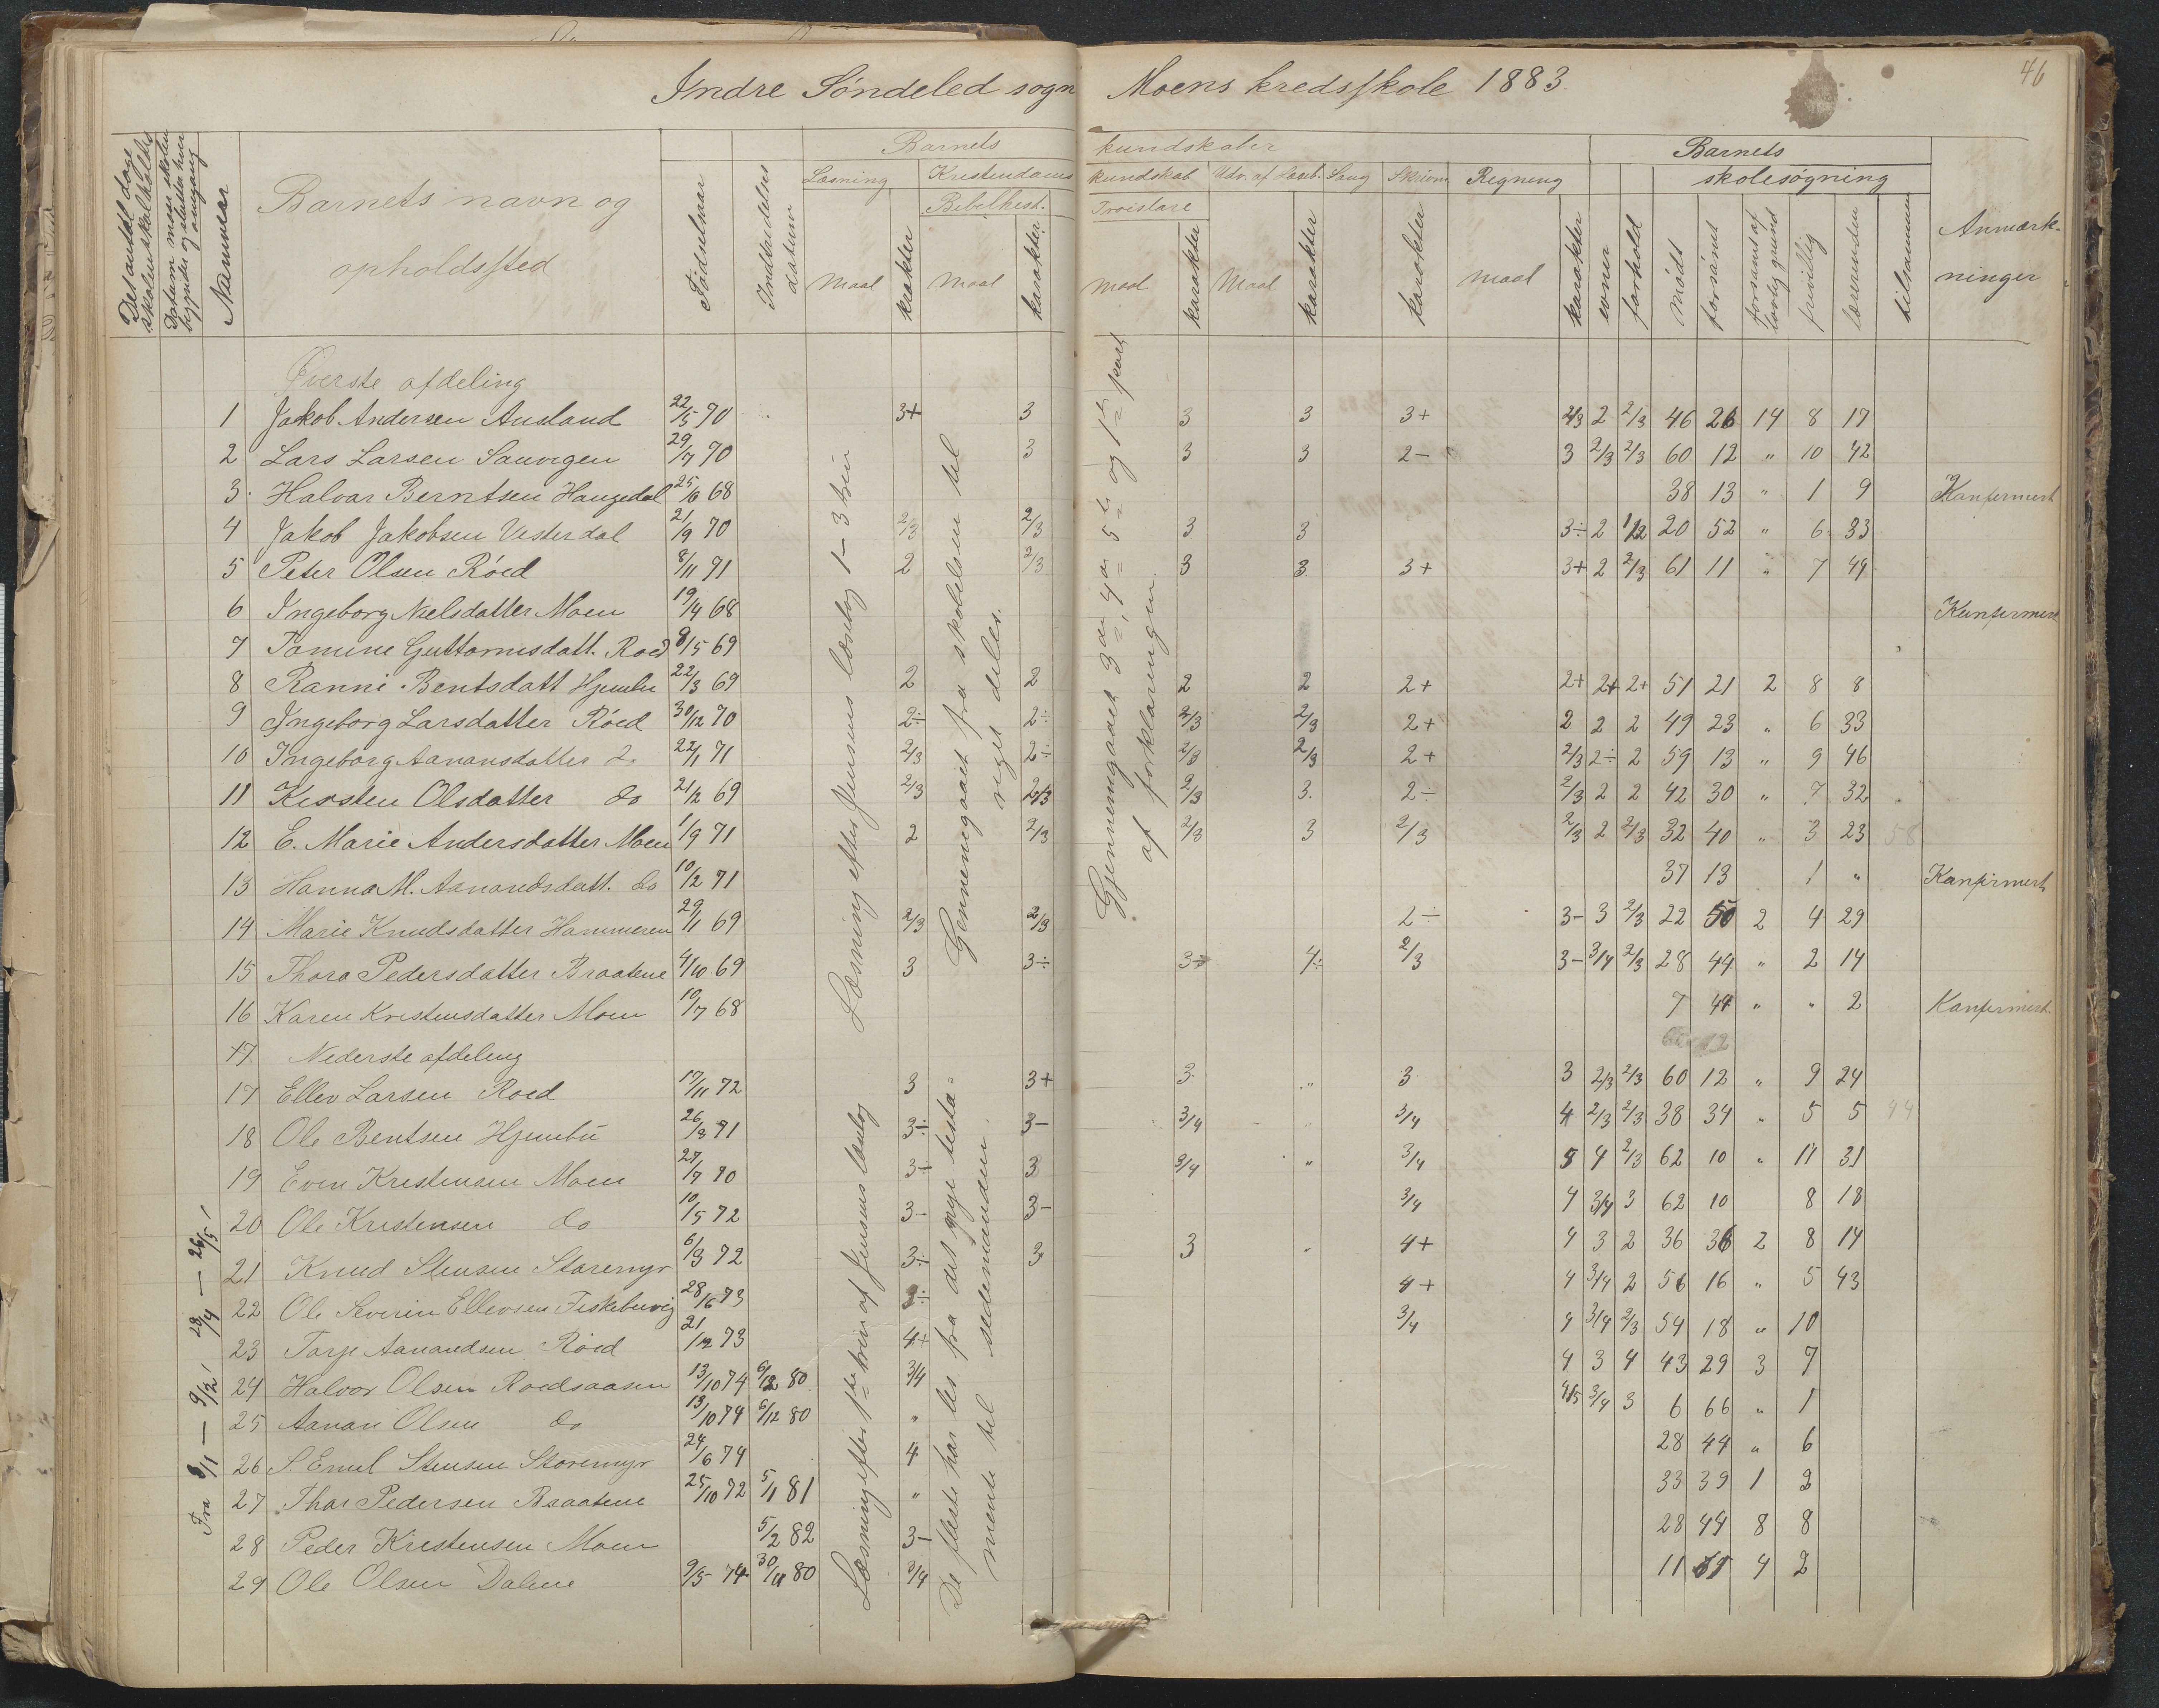 46
Indre Søndeled sogn Moens kredsskole 1883.
Det antal dage skolen skal holdes
Datum naar skolen begynder og slutter hver omgang
Nummer
Barnets navn og opholdssted
Fødselsaar
Indtrædelses datum
Barnets kundskaber
Barnets skolesøgning
Læsning Kristendoms kundskab Udv. af Læseb. Sang Skrivn. Regning
Bibelhist. Troeslære
maal karakter maal karakter maal karakter Maal karakter karakter maal karakter evner forhold mødt forsømt forsømt af lovlig grund frivillig
Anmærkninger
Øverste afdeling
1 Jakob Andersen Ausland 22/5 70 3+ 3 3 3 3+ 2/3 2 2/3 46 26 14 8 17
2 Lars Larsen Sauvigen 29/7 70 3 3 3 2- 3 2/3 2/3 60 12 " 10 42
3 Halvor Berntsen Haugedal 25/6 68 38 13 " 1 9 Konfirmert
4 Jakob Jakobsen Vesterdal 21/9 70 2/3 2/3 3 3 3÷ 2 1/2 20 52 " 6 33
5 Peter Olsen Röed 8/11 71 2 2/3 3 3 3+ 3+ 2 2/3 61 11 " 7 49
6 Ingeborg Nielsdatter Moen 19/4 68 Konfirmert
7 Tomine Guttormsdatt. Roed 8/5 69
8 Ranni Bentsdatt Hjembu 22/3 69 2 2 2 2 2+ 2+ 2+ 2+ 51 21 2 8 8
9 Ingeborg Larsdatter Röed 30/12 70 2÷ 2÷ 2/3 2/3 2+ 2 2 2 49 23 " 6 33
10 Ingeborg Aanonsdatter do 22/1 71 2/3 2÷ 2/3 2/3 2+ 2/3 2÷ 2 59 13 " 9 46
11 Kirsten Olsdatter do 21/2 69 2/3 2/3 2/3 3. 2÷ 2/3 2 2 42 30 " 7 32
12 E. Marie Andersdatter Moen 1/9 71 2 2/3 2/3 3 2/3 2/3 2 2/3 32 40 " 3 23 58
13 Hanna M. Aanondsdatt. do 10/2 71 37 13 1 " Konfirmert
14 Marie Knudsdatter Hammeren 29/11 69 2/3 2/3 2÷ 3- 3 2/3 22 50 2 4 29
15 Thora Pedersdatter Braatene 4/10 69 3 3÷ 3÷ 4÷ 2/3 3- 3/4 2/3 28 44 " 2 14
16 Karen Kristensdatter Moen 10/7 68 7 44 " " 2 Konfirmert.
17. Nederste afdeling
17 Ellev Larsen Roed 17/11 72 3 3+ 3 " 3 3 2/3 2/3 60 12 " 9 24
18 Ole Bentsen Hjembu 26/3 71 3÷ 3- 3/4 3/4 4 2/3 2/3 38 34 " 5 5 44
19 Even Kristensen Moen 3÷ 3 3/4 " 3/4 5 4 2/3 62 10 " 11 31
20 Ole Kristensen do 10/5 72 3- 3- 3/4 4 3/4 3 62 10 8 18
21 Knud Stensen Storemyr 6/3 72 3÷ 3 3 4+ 4 3 2 36 36 2 8 14
22 Ole Severin Ellevsen Fiskebuvig 28/6 73 3÷ 4+ 4 3/4 2 56 16 " 5 43
23 Torje Aanondsen Röed 21/12 73 4+ 3/4 4 3/4 2/3 54 18 " 10
24 Halvor Olsen Roedsaasen 13/10 74 6/12 80 3/4 4 3 4 43 29 3 7
25 Aanon Olsen do 13/10 74 6/12 80 " 4/5 3/4 3 6 66 " 1
26 S. Emil Stensen Storemyr 24/6 74 4 28 44 " 6
27 Thor Pedersen Braatene 25/10 72 5/1 81 " 33 39 1 2
28 Peder Kristensen Moen 5/2 82 3- 28 44 8 8
29 Ole Olsen Dalene 9/5 74 30/11 80 3/4 11 61 4 2
Fra 3/1 — 9/2 23/4 — 26/5
Læsning efter Jensens læsebog 1-3 trin
Gennemgaaet fra skabelsen til riget deles.
Gjennemgaaet 3die, 4de 5te og 1te part af forklaringen.
Læsning efter 1ste trin af Jensens læsebog
De fleste har læs fra det nye testa- mente til sedemanden.